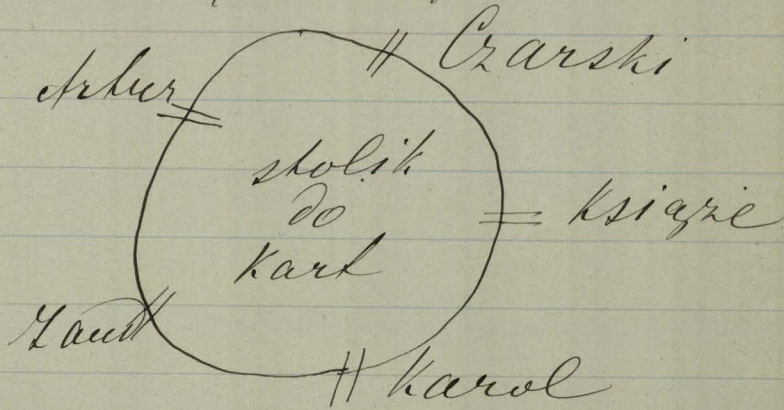 Czarski
Artur
stolik
do
Kart
Książe
Karol